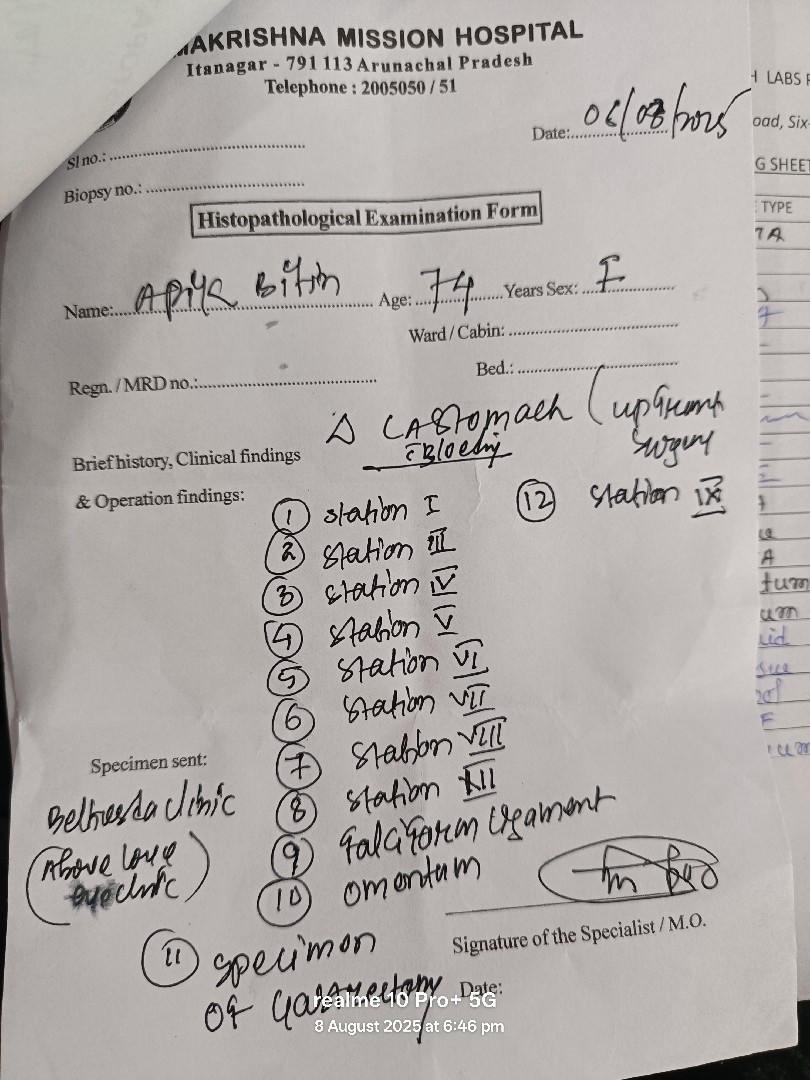 AKRISHNA MISSION HOSPITAL
Itanagar - 791 113 Arunachal Pradesh
Telephone : 2005050 / 51
Date: 06/08/2025
Sl no.:
Biopsy no.:
Histopathological Examination Form
Name: Bitin Age: 74 Years Sex: F
Ward / Cabin:
Bed.:
Regn. / MRD no.:
Δ CA Stomach (upfront
Bleeding surgery
Brief history, Clinical findings
& Operation findings:
① station I
② station III
③ station IV
④ station V
⑤ station VI
⑥ station VII
⑦ station VIII
⑧ station XII
⑨ Falciform ligament
⑩ omentum
⑪ specimen
of Gastrectomy
⑫ station IX
Specimen sent:
Bethesda clinic
(Above love
eye clinic)
Signature of the Specialist / M.O.
Date:
realme 10 Pro+ 5G
8 August 2025 at 6:46 pm
LABS
oad, Six-
G SHEET
TYPE
7A
A
tum
um
F